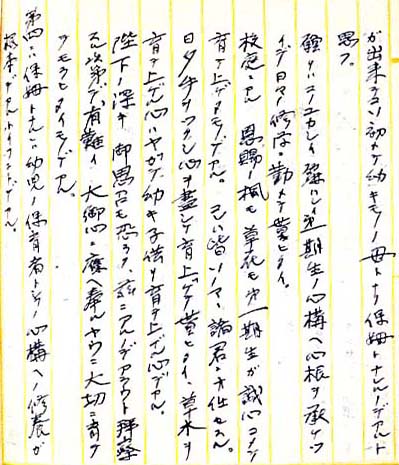 が出来テコソ初メテ幼キモノノ母トナリ保姆トナルノデアルト
思フ。
第一期生ノ心構ヘ心根ヲ承ケツ
イデ日々修学ニ勤メテ貰ヒタイ。
校庭ニアル恩賜ノ楓モ草花モ第一期生が誠心コメテ
育テ上ゲタモノデアル。之ハ皆ソノママ諸君ニオ任セスル。
日夕手ヲツクシ心ヲ盡シテ育上ゲテ貰ヒタイ、草木ヲ
育テ上ゲル心ハヤガテ幼キ子供ヲ育テ上ゲル心デアル。
陛下ノ深キ御思召モ恐ラク茲ニアルノデアラウト拝察
スル次第デ有難イ大御心ニ應ヘ奉ルヤウニ大切ニ育テ
テモラヒタイモノデアル。
第四ハ保姆トナルニハ幼児ノ保育者トシテノ心構ヘノ修養が
根本デアルトイフコトデアル。